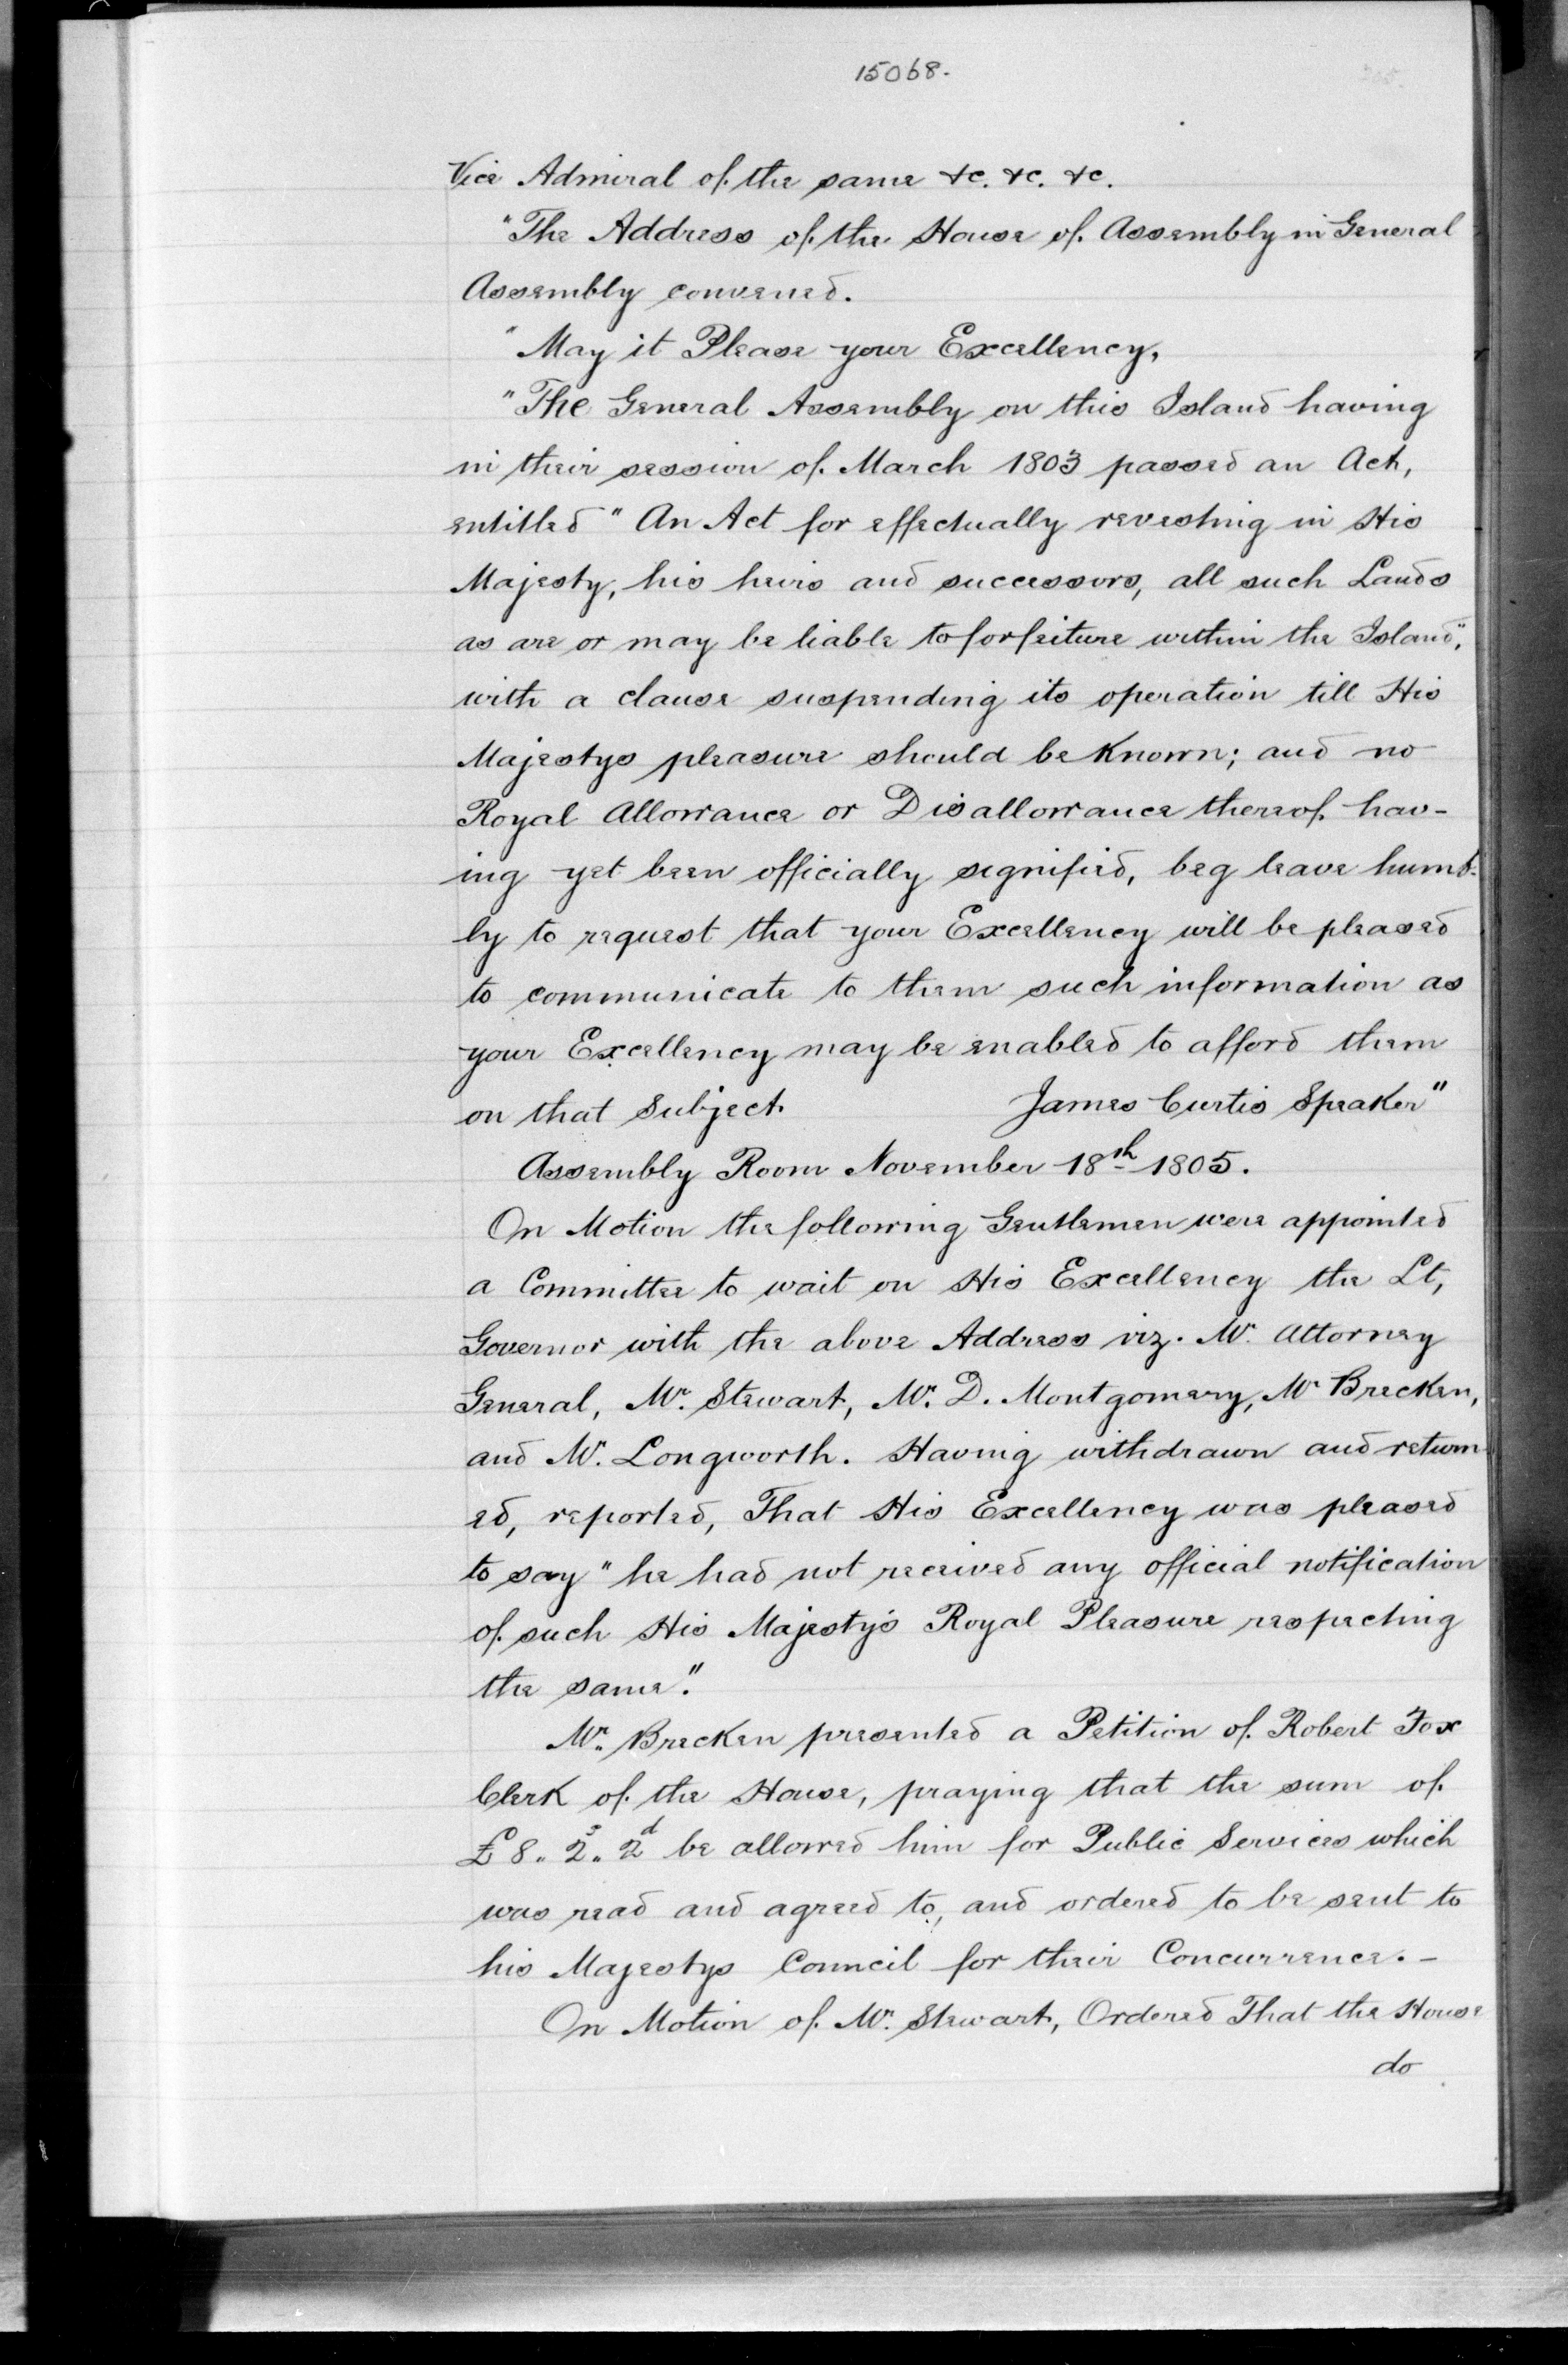 15068.
Vice Admiral of the same &c. &c. &c.
"The Address of the House of Assembly in General
Assembly convened.
"May it Please your Excellency,
"The General Assembly on this Island having
in their session of March 1803 passed an Act,
entitled "An Act for effectually revesting in His
Majesty, his heirs and successors, all such Lands
as are or may be liable to forfeiture within the Island",
with a clause suspending its operation till His
Majestys pleasure should be known; and no
Royal Allowance or Disallowance thereof hav-
ing yet been officially signified, beg leave humb-
ly to request that your Excellency will be pleased
to communicate to them such information as
your Excellency may be enabled to afford them
on that Subject. James Curtis Speaker"
Assembly Room November 18th 1805.
On Motion the following Gentlemen were appointed
a Committee to wait on His Excellency the Lt,
Governor with the above Address viz. Mr. Attorney
General, Mr. Stewart, Mr. D. Montgomery, Mr Brecken,
and Mr. Longworth. Having withdrawn and return
ed, reported, That His Excellency was pleased
to say "he had not received any official notification
of such His Majesty's Royal Pleasure respecting
the same".
Mr. Brecken presented a Petition of Robert Fox
Clerk of the House, praying that the sum of
£8.. 2s.. 2d be allowed him for Public Services which
was read and agreed to, and ordered to be sent to
his Majestys Council for their Concurrence. -
On Motion of Mr. Stewart, Ordered That the House
do